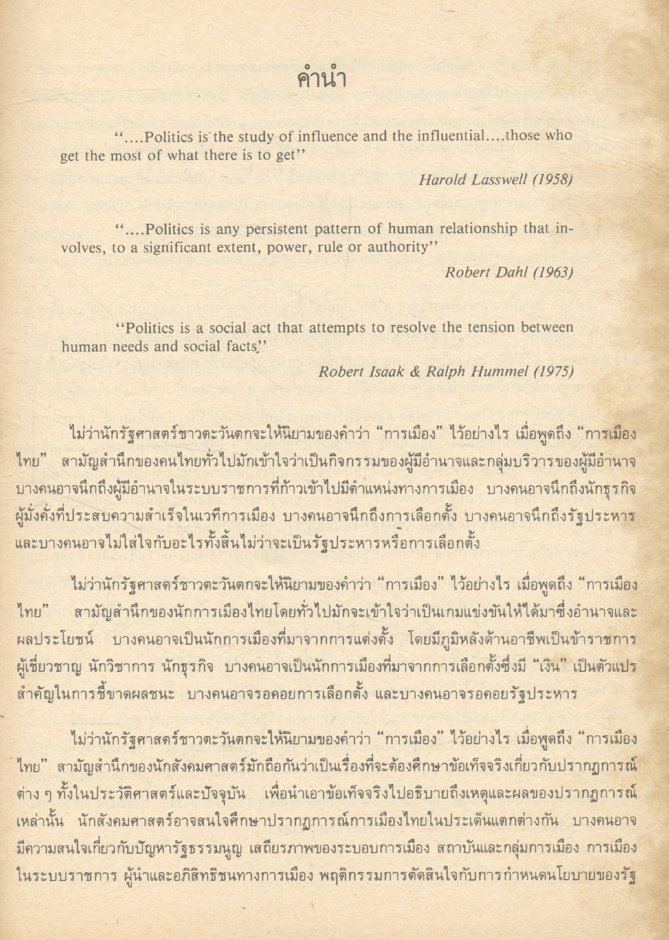 คำนำ
“....Politics is the study of influence and the influential....those who
get the most of what there is to get”
Harold Lasswell (1958)
“....Politics is any persistent pattern of human relationship that in-
volves, to a significant extent, power, rule or authority”
Robert Dahl (1963)
“Politics is a social act that attempts to resolve the tension between
human needs and social facts.”
Robert Isaak & Ralph Hummel (1975)
ไม่ว่านักรัฐศาสตร์ชาวตะวันตกจะให้นิยามของคำว่า “การเมือง” ไว้อย่างไร เมื่อพูดถึง “การเมือง
ไทย” สามัญสำนึกของคนไทยทั่วไปมักเข้าใจว่าเป็นกิจกรรมของผู้มีอำนาจและกลุ่มบริวารของผู้มีอำนาจ
บางคนอาจนึกถึงผู้มีอำนาจในระบบราชการที่ก้าวเข้าไปมีตำแหน่งทางการเมือง บางคนอาจนึกถึงนักธุรกิจ
ผู้มั่งคั่งที่ประสบความสำเร็จในเวทีการเมือง บางคนอาจนึกถึงการเลือกตั้ง บางคนอาจนึกถึงรัฐประหาร
และบางคนอาจไม่ใส่ใจกับอะไรทั้งสิ้นไม่ว่าจะเป็นรัฐประหารหรือการเลือกตั้ง
ไม่ว่านักรัฐศาสตร์ชาวตะวันตกจะให้นิยามของคำว่า “การเมือง” ไว้อย่างไร เมื่อพูดถึง “การเมือง
ไทย” สามัญสำนึกของนักการเมืองไทยโดยทั่วไปมักจะเข้าใจว่าเป็นเกมแข่งขันให้ได้มาซึ่งอำนาจและ
ผลประโยชน์ บางคนอาจเป็นนักการเมืองที่มาจากการแต่งตั้ง โดยมีภูมิหลังด้านอาชีพเป็นข้าราชการ
ผู้เชี่ยวชาญ นักวิชาการ นักธุรกิจ บางคนอาจเป็นนักการเมืองที่มาจากการเลือกตั้งซึ่งมี “เงิน” เป็นตัวแปร
สำคัญในการชี้ขาดผลชนะ บางคนอาจรอคอยการเลือกตั้ง และบางคนอาจรอคอยรัฐประหาร
ไม่ว่านักรัฐศาสตร์ชาวตะวันตกจะให้นิยามของคำว่า “การเมือง” ไว้อย่างไร เมื่อพูดถึง “การเมือง
ไทย” สามัญสำนึกของนักสังคมศาสตร์มักถือกันว่าเป็นเรื่องที่จะต้องศึกษาข้อเท็จจริงเกี่ยวกับปรากฏการณ์
ต่าง ๆ ทั้งในประวัติศาสตร์และปัจจุบัน เพื่อนำเอาข้อเท็จจริงไปอธิบายถึงเหตุและผลของปรากฏการณ์
เหล่านั้น นักสังคมศาสตร์อาจสนใจศึกษาปรากฏการณ์การเมืองไทยในประเด็นแตกต่างกัน บางคนอาจ
มีความสนใจเกี่ยวกับปัญหารัฐธรรมนูญ เสถียรภาพของระบอบการเมือง สถาบันและกลุ่มการเมือง การเมือง
ในระบบราชการ ผู้นำและอภิสิทธิชนทางการเมือง พฤติกรรมการตัดสินใจกับการกำหนดนโยบายของรัฐ